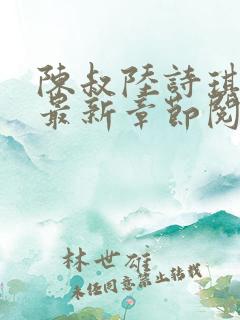 陳叔陸詩琪
最新章節閱
林世雄
未任同意禁止轉載